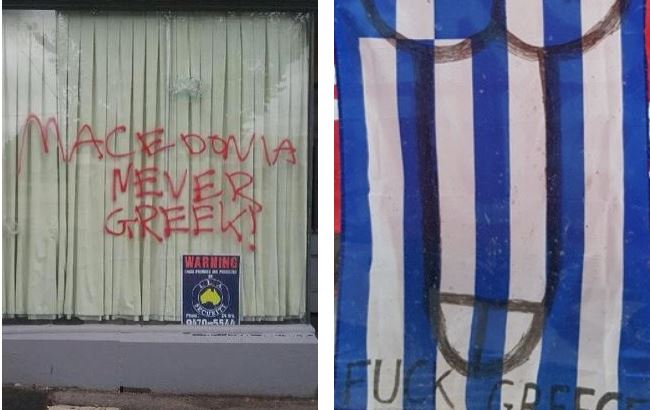 MACEDONIA
NEVER
GREEK!
WARNING
SECURITY
FUCK GREECE